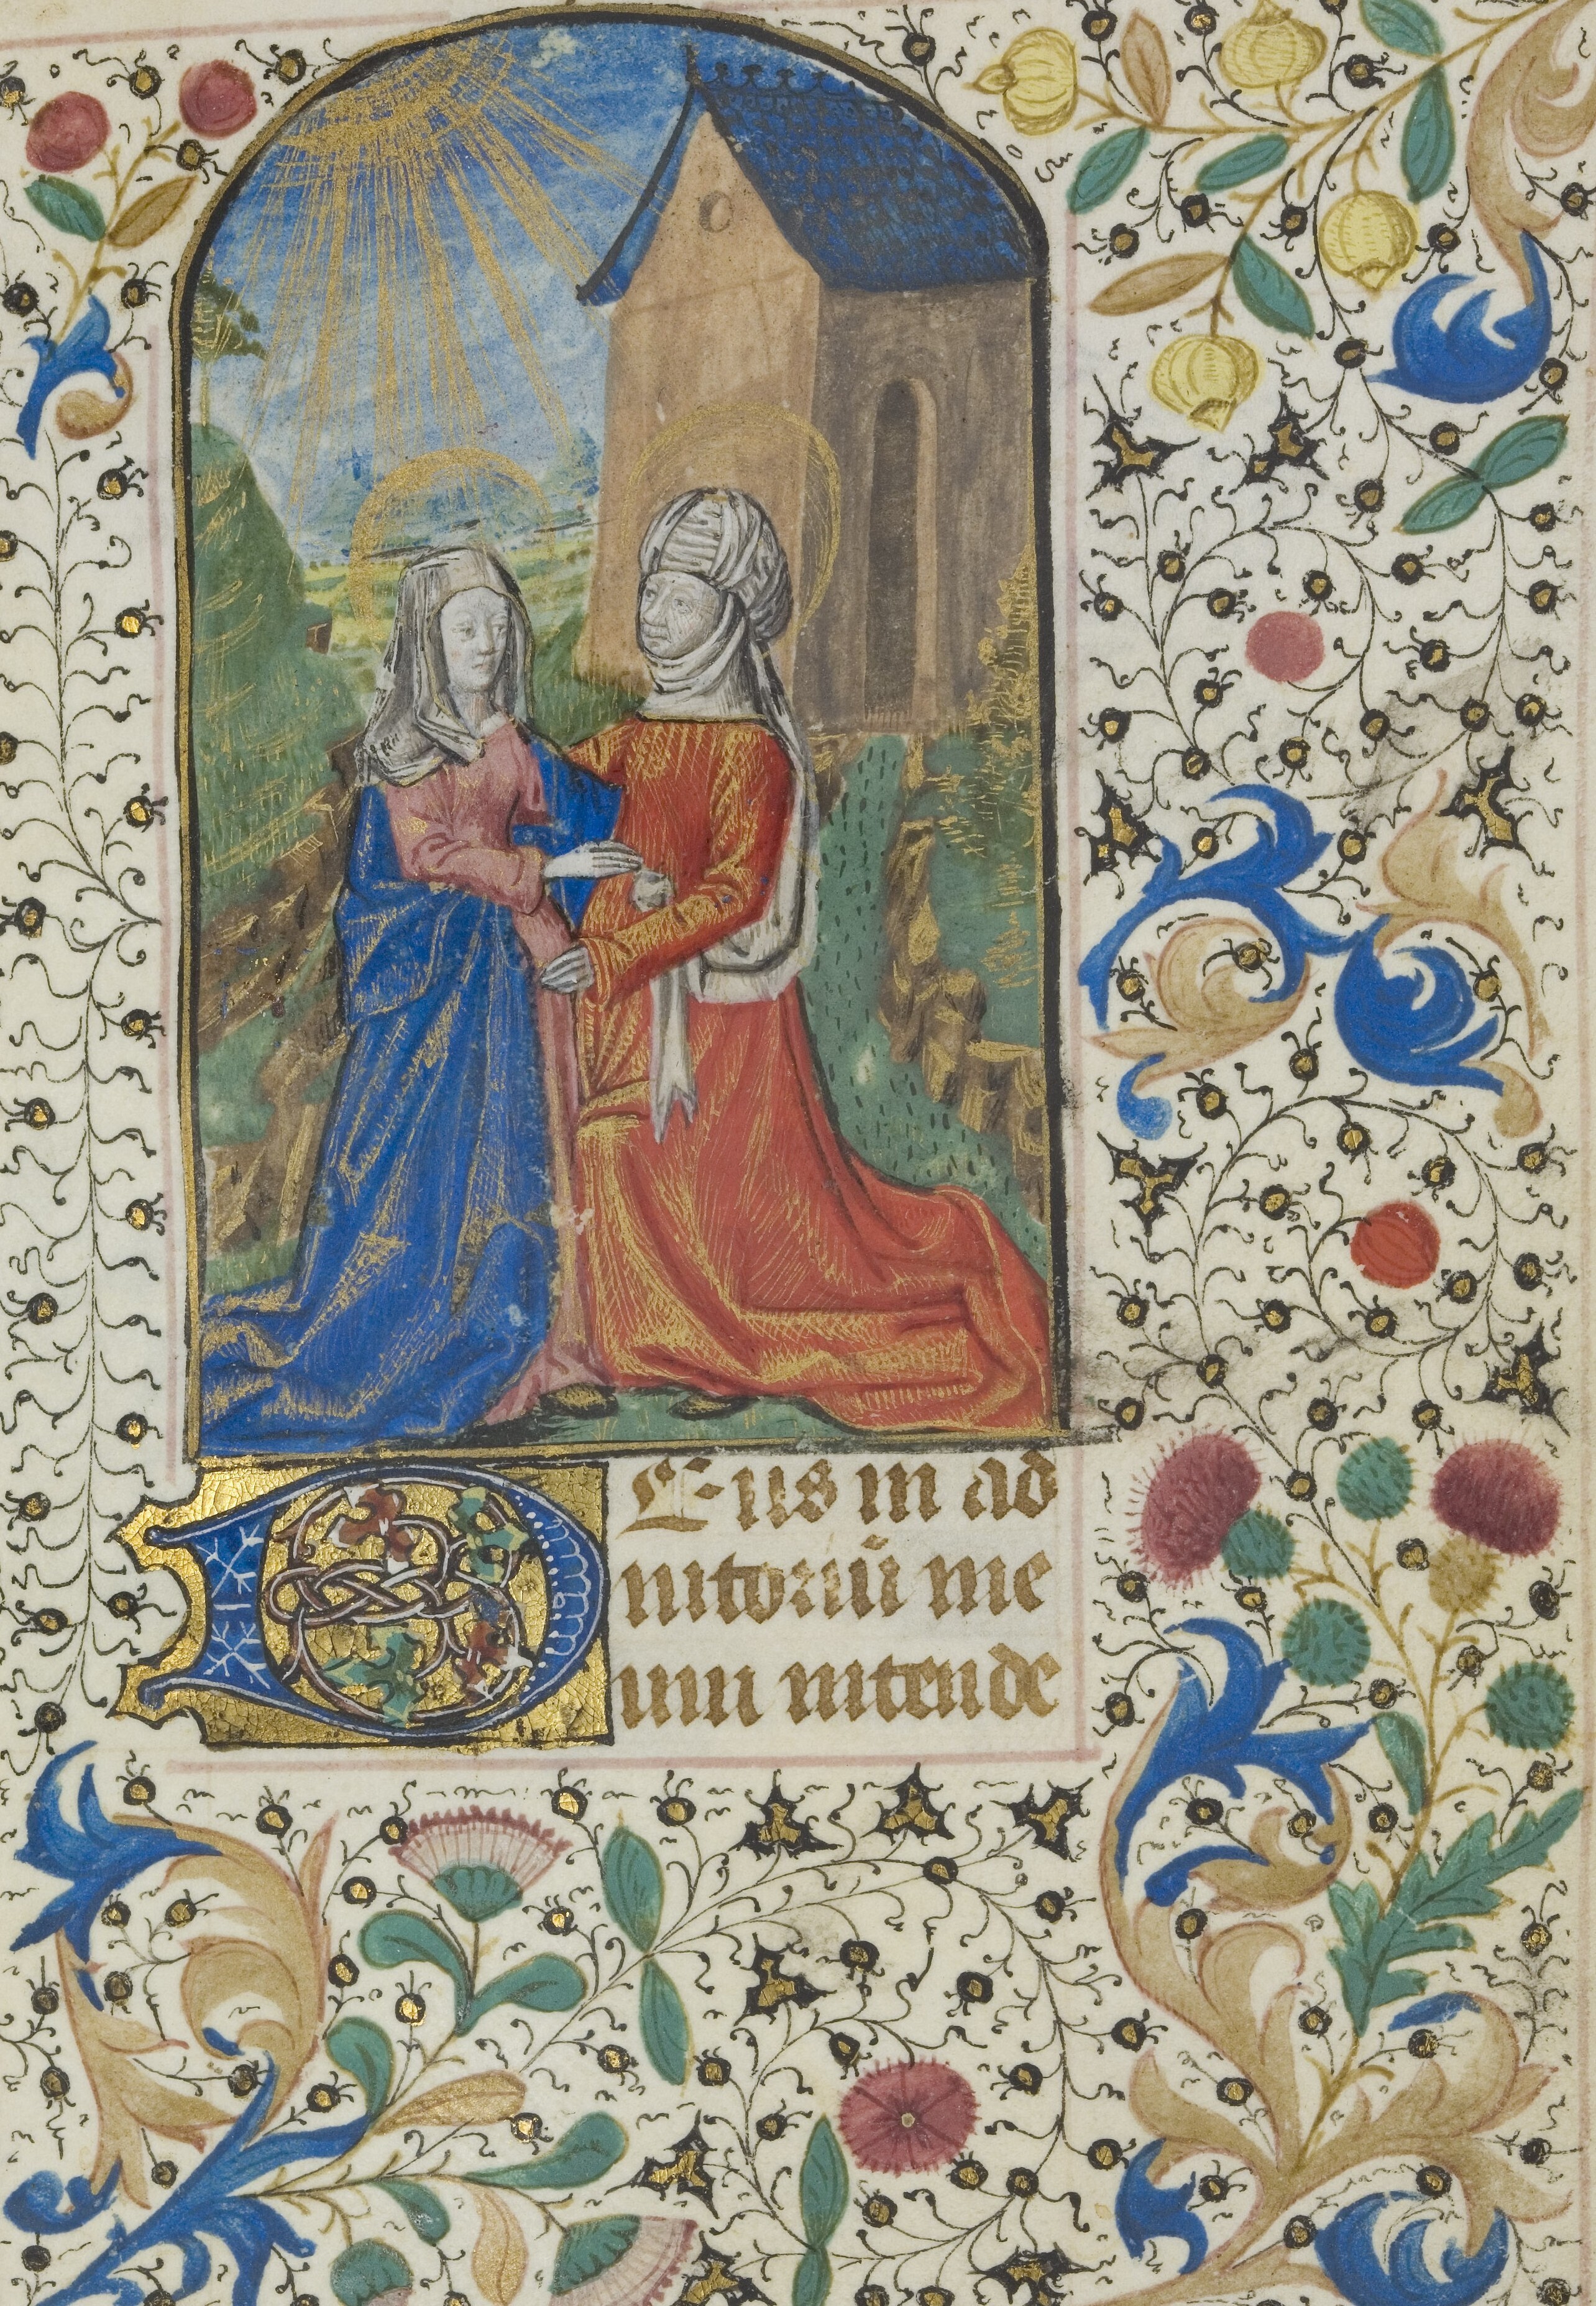 DEus in ad
iutoriū me
um intende